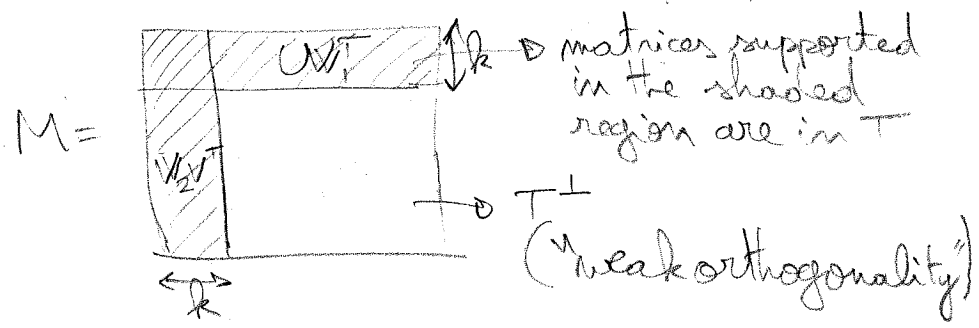 UW₁ᵀ
k → matrices supported
in the shaded
region are in T
M =
W₂Vᵀ
→ T^⊥
("weak orthogonality")
k